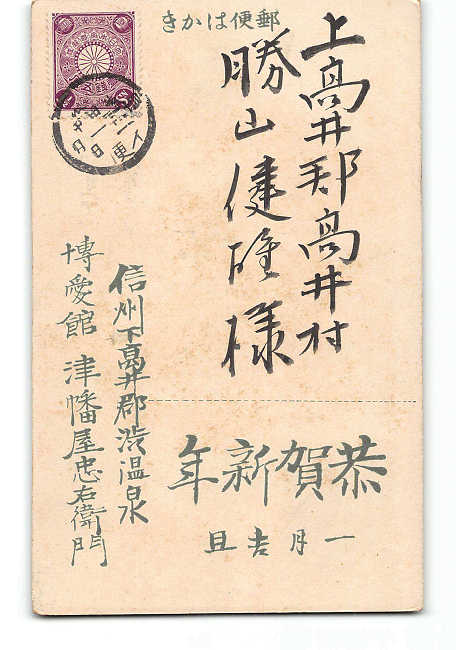 郵便はかき
上高井郡高井村
勝山健雄様
恭賀新年
一月吉旦
信州下高井郡渋温泉
博愛館 津幡屋忠右衛門